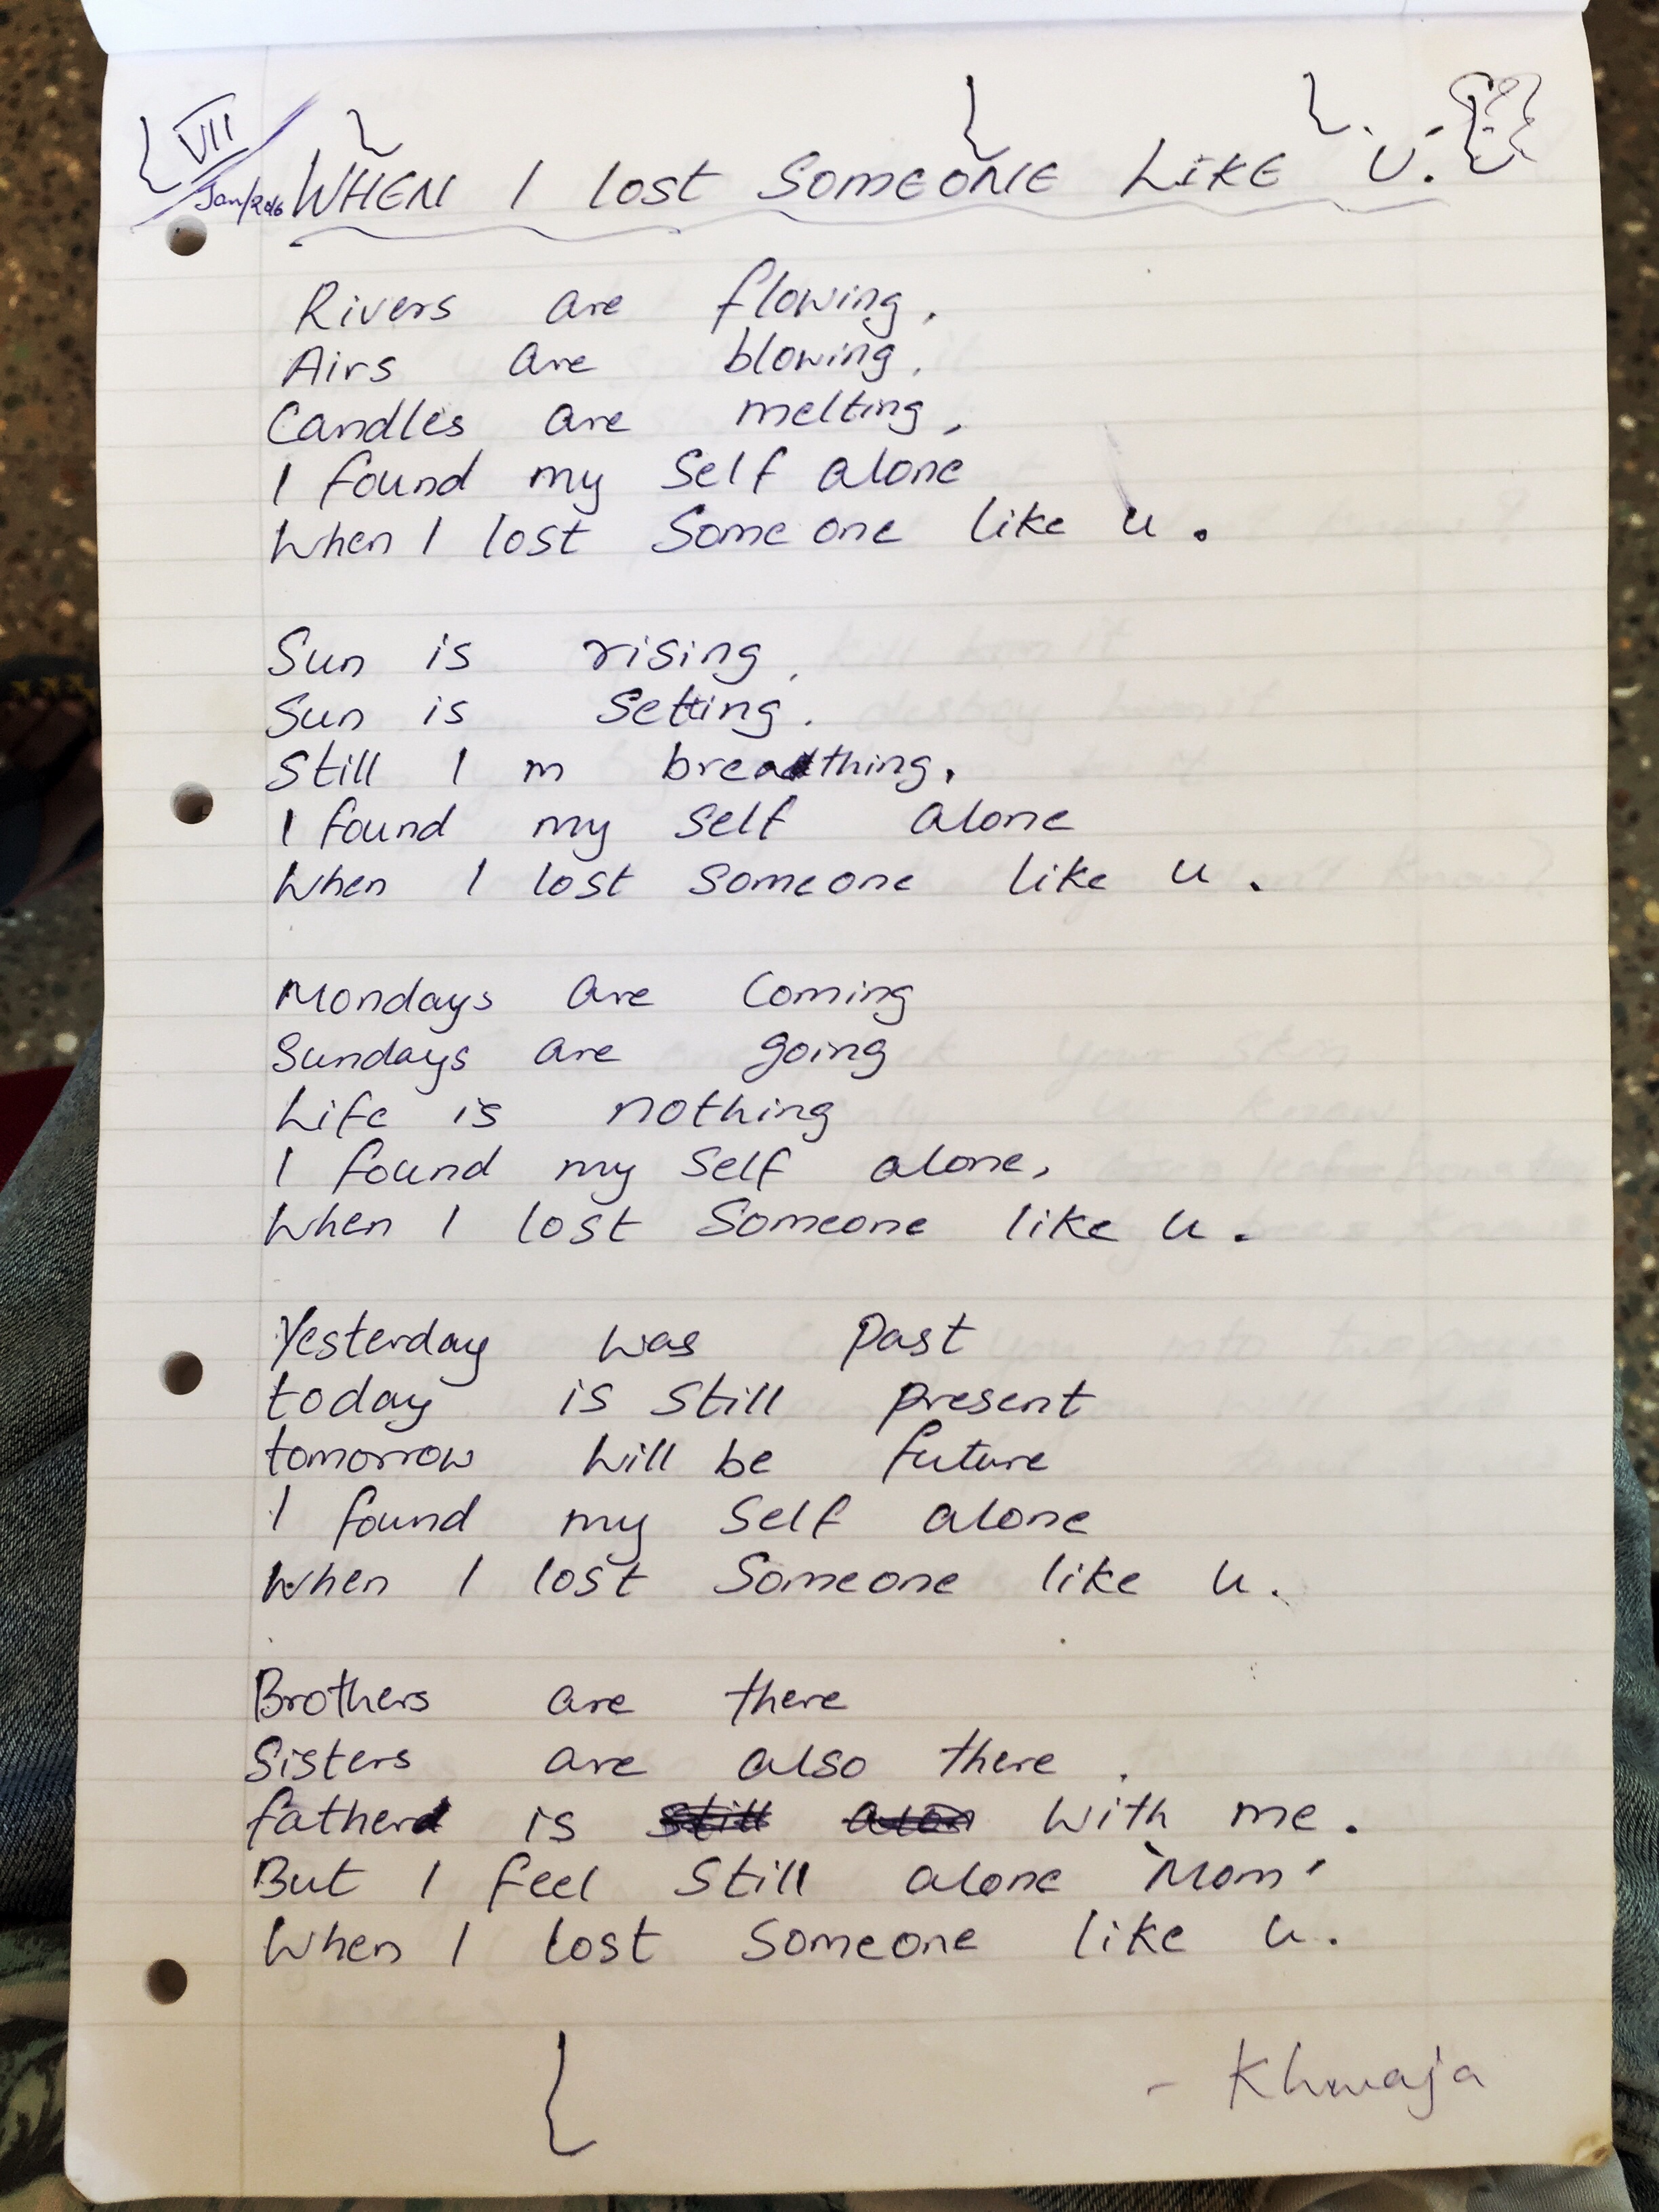 VII
Jan/2016
WHEN I lost SOMEONE LiKE U.
Rivers are flowing,
Airs are blowing,
Candles are melting,
I found my Self alone
When I lost Some one like u.
Sun is rising,
Sun is Setting.
Still I m breathing,
I found my Self alone
When I lost Someone like u.
Mondays are Coming
Sundays are going
Life is nothing
I found my Self alone,
When I lost Someone like u.
Yesterday was Past
today is Still present
tomorrow will be future
I found my Self alone
When I lost Someone like u.
Brothers are there
Sisters are also there.
father is still with me.
But I feel Still alone 'Mom'
When I lost Someone like u.
- Khwaja